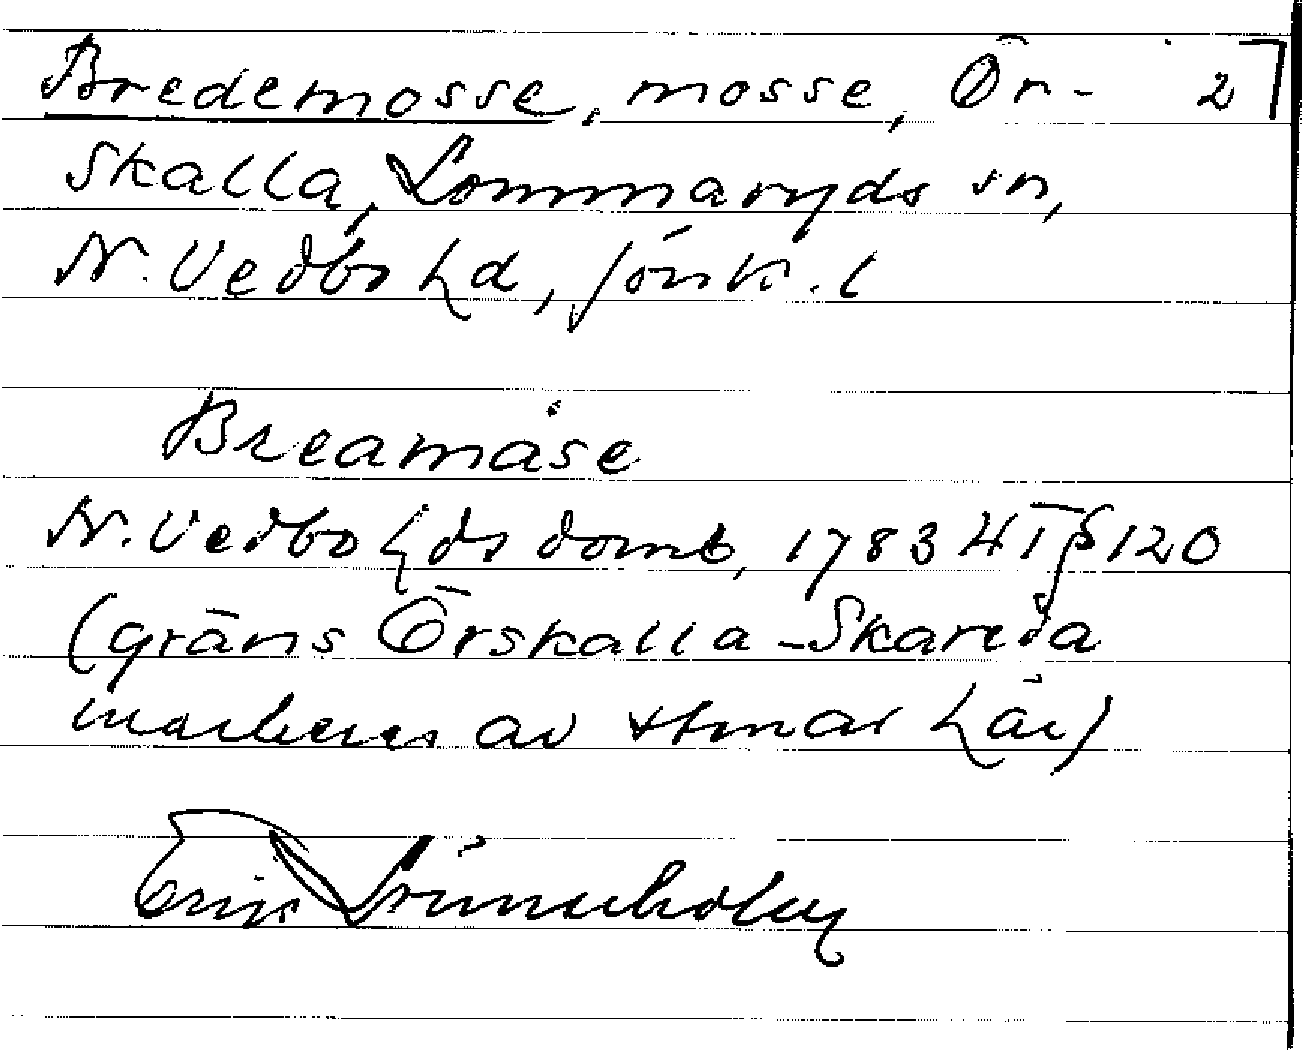 Bredemosse, mosse, Ör- 2
skalla, Lommaryds sn,
N. Vedbo hd, Jönk. l
Breamåse
N. Vedbo hds domb, 1783 HT § 120
(gräns Örskalla-Skareda
markeras av stenar här)